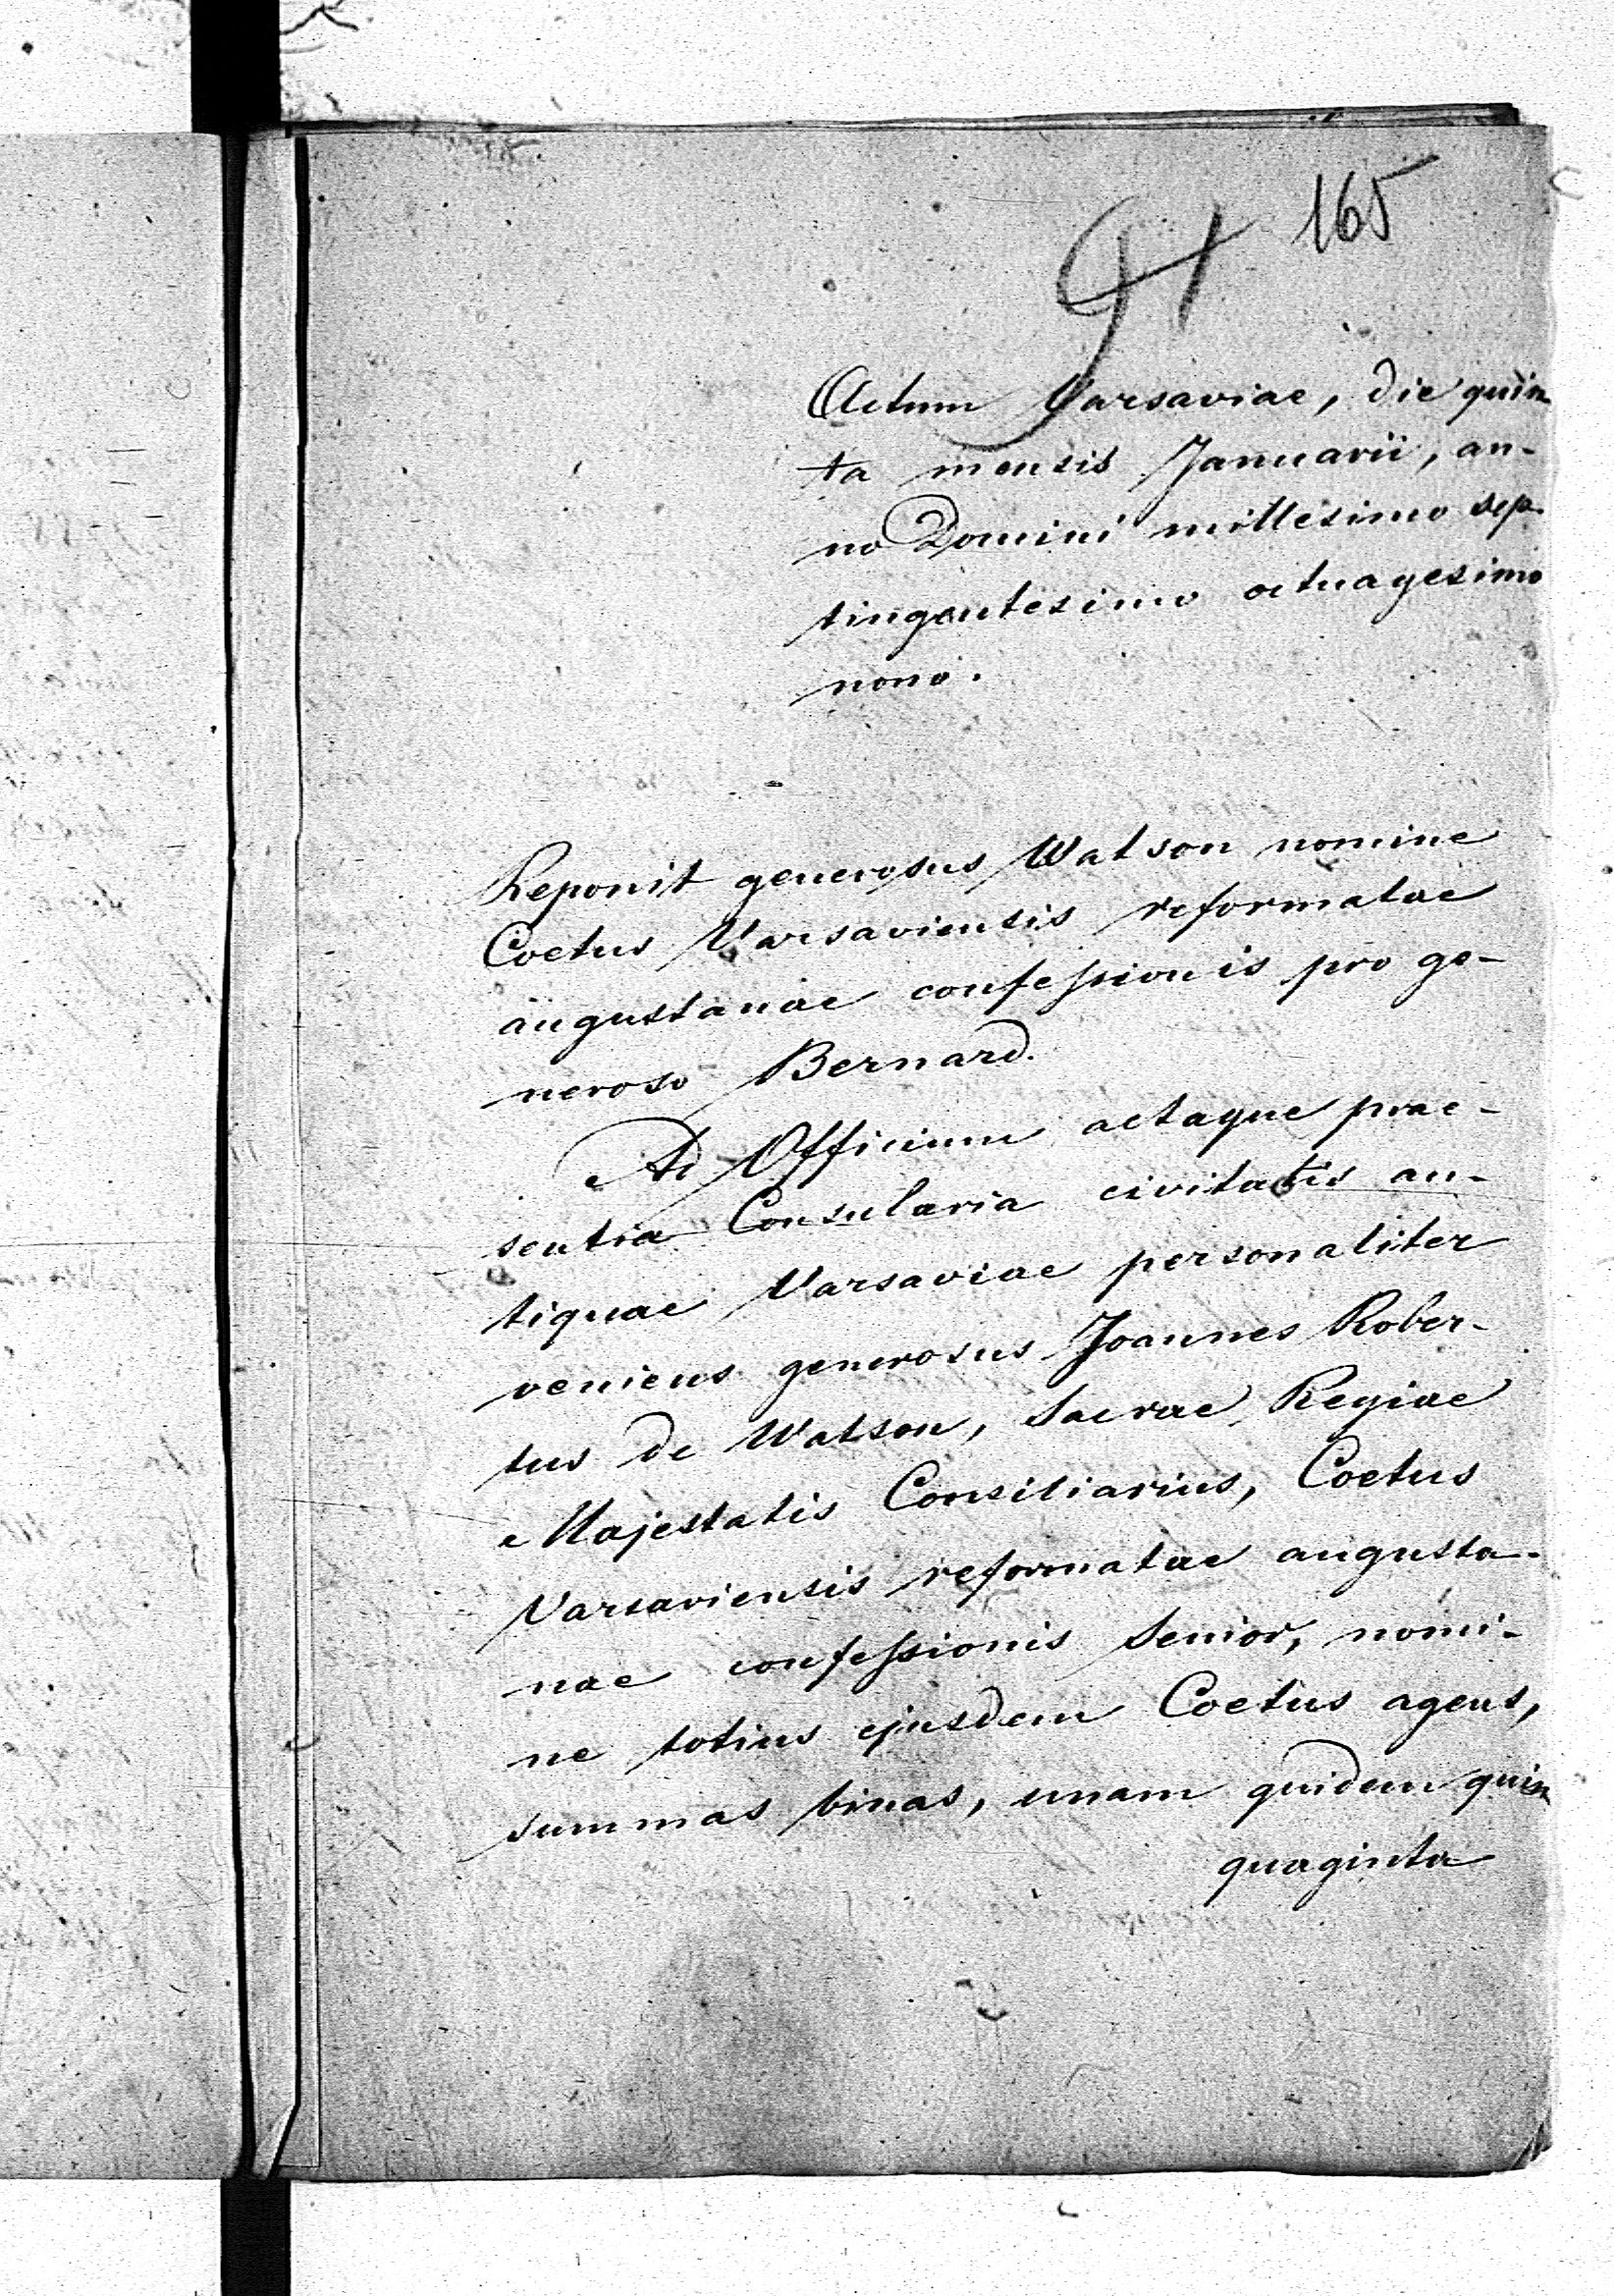 165
91
Actum Varsaviae, die quin
ta mensis Januarii, an-
no Domini millesimo sep-
tingentesimo octuagesimo
nono.
Reponit generosus Watson nomine
Coetus Varsaviensis reformatae
augustanae confessionis pro ge-
neroso Bernard.
Ad Officium actaque prae-
sentia Consularia civitatis an-
tiquae Varsaviae personaliter
veniens generosus Joannes Rober-
tus de Watson, Sacrae Regiae
Majestatis Consiliarius, Coetus
Varsaviensis reformatae augusta-
nae confessionis Senior, nomi-
ne totius ejusdem Coetus agens,
summas binas, unam quidem quin
quaginta